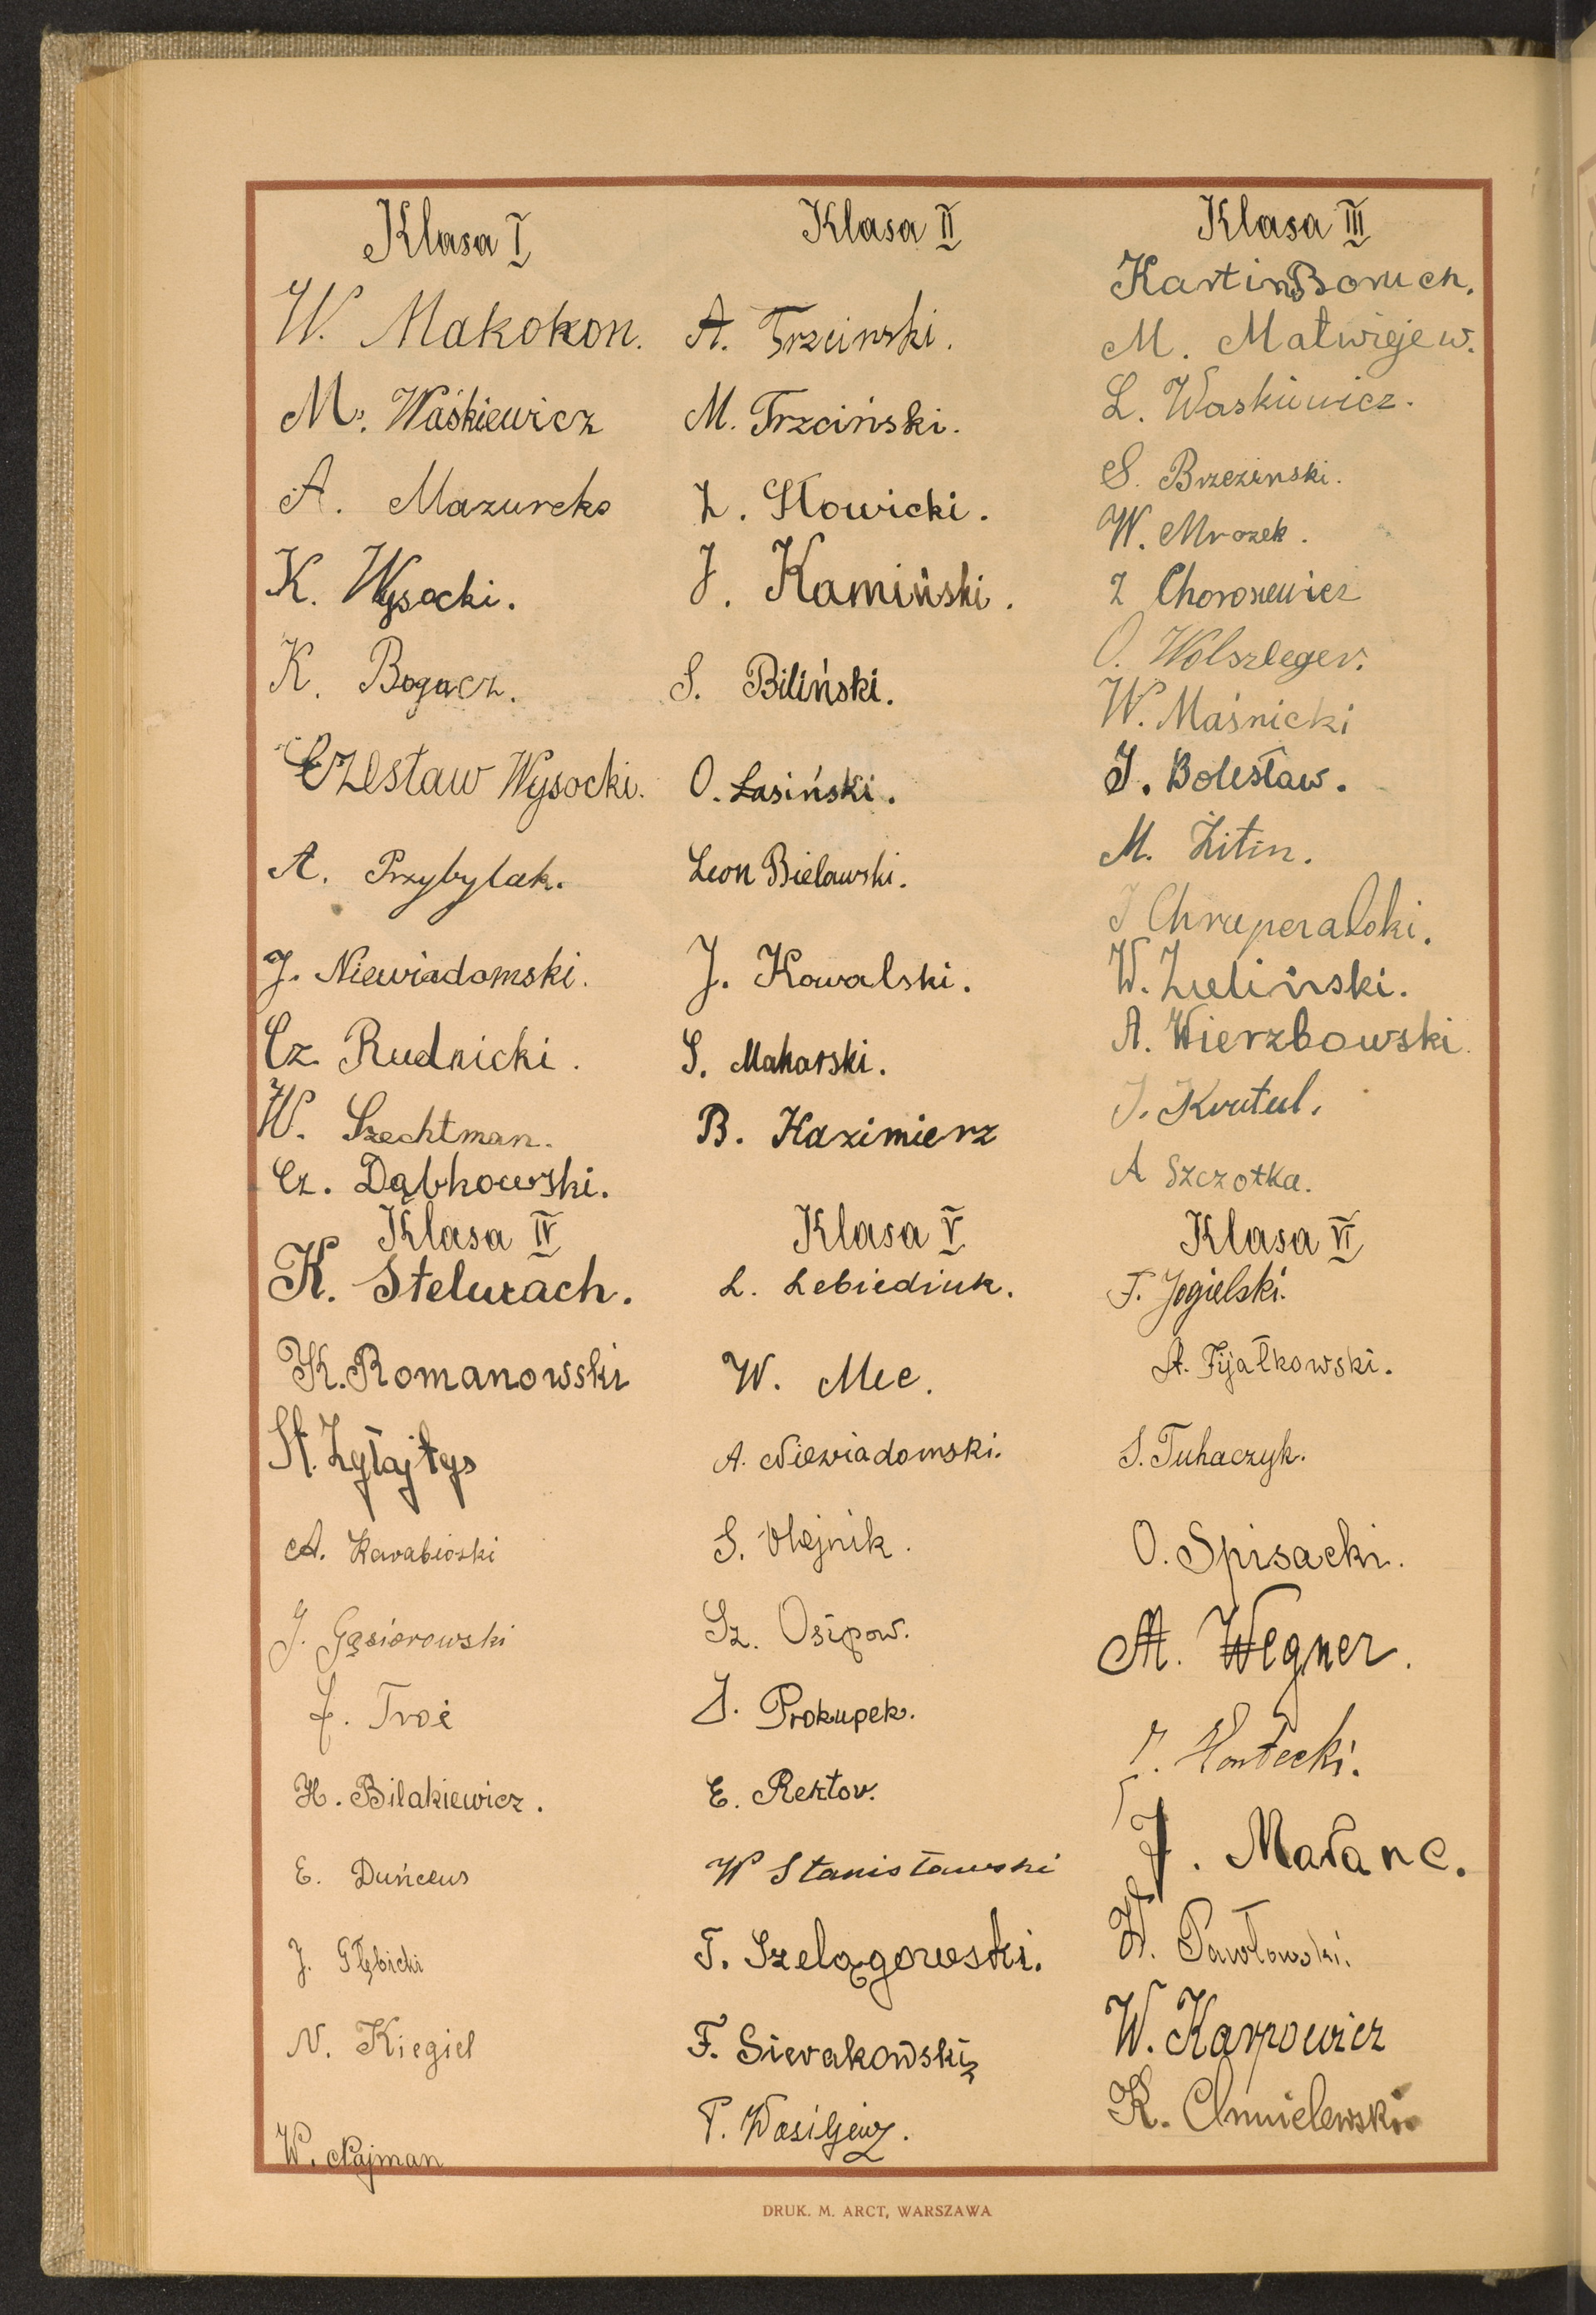 Klasa I
W. Makokon.
M. Waśkiewicz
A. Mazurek
K. Wysocki.
K. Bogacz.
Czesław Wysocki.
A. Przybylak.
J. Niewiadomski.
Cz. Rudnicki.
W. Szechtman.
Cz. Dąbkowski.
Klasa II
A. Trzcinski.
M. Trzciński.
Z. Słowicki.
J. Kamiński.
S. Biliński.
O. Lasiński.
Leon Bielawski.
J. Kowalski.
S. Makarski.
B. Kazimierz
Klasa III
Kartin Boruch.
M. Matwiejew.
L. Waskiewicz.
S. Brzezinski.
W. Mrozek.
Z Choroszewicz
O. Wolszleger.
W. Maśnicki
J. Bolesław.
M. Żitin.
W. Zieliński.
A. Wierzbowski.
J. Krutul.
A Szczotka.
Klasa IV
K. Stelurach.
K. Romanowski
St. Zyłajtys
A. Karabioski
J. Gąsiorowski
H. Bilakiewicz.
E. Duńceus
J. Głębicki
N. Kiegiel
W. Najman
Klasa V
L. Lebiediuk.
W. Mec.
A. Niewiadomski.
S. Olejnik.
Sz. Osipow.
J. Prokupek.
E. Rektor.
W Stanisławski
T. Szelągowski.
F. Sierakowski
P. Wasiljew.
Klasa VI
F. Jogielski.
A. Fijałkowski.
S. Tuhaczyk.
O. Spisacki.
M. Wegner.
J. Małanc.
W. Pawłowski.
W. Karpowicz
K. Chmielewski
DRUK. M. ARCT, WARSZAWA